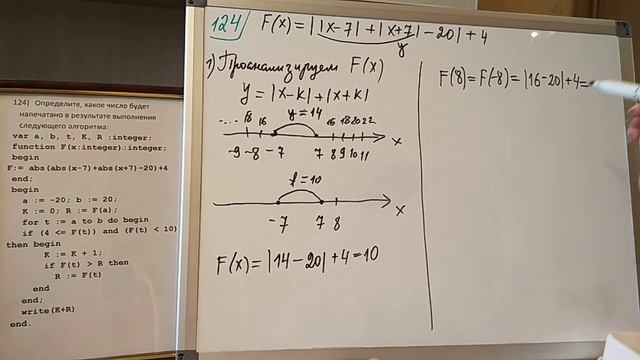 124) Определите, какое число будет
напечатано в результате выполнения
следующего алгоритма:
var a, b, t, K, R :integer;
function F(x:integer):integer;
begin
F:= abs(abs(x-7)+abs(x+7)-20)+4
end;
begin
a := -20; b := 20;
K := 0; R := F(a);
for t := a to b do begin
if (4 <= F(t)) and (F(t) < 10)
then begin
K := K + 1;
if F(t) > R then
R := F(t)
end
end;
write(K+R)
end.
124) F(x) = ||x-7| + |x+7| - 20| + 4
y
1) Проанализируем F(x)
y = |x-k| + |x+k|
y = 14
.... 18 16 16 18 20 22
-9 -8 -7 7 8 9 10 11 x
f = 10
-7 7 8 x
F(x) = |14 - 20| + 4 = 10
F(8) = F(-8) = |16-20| + 4 =